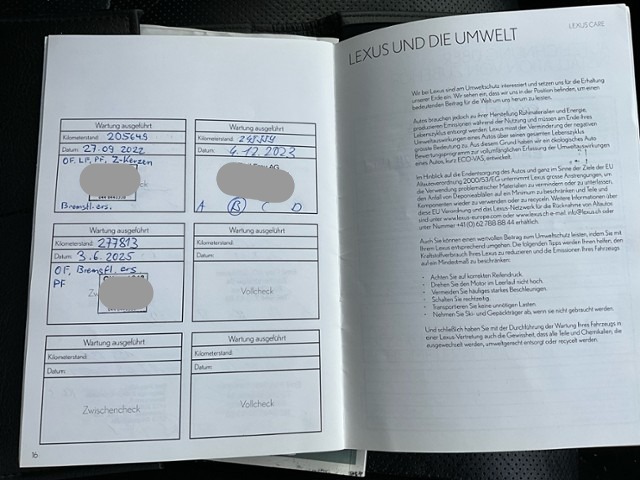 Wartung ausgeführt
Kilometerstand: 205649
Datum: 27.09 2022
OF, LP, PF, Z-Kerzen
Bremsfl. ers.
Wartung ausgeführt
Kilometerstand:
Datum: 4.12.2023
A B C D
Wartung ausgeführt
Kilometerstand: 277813
Datum: 3.6.2025
OF, Bremsfl. ers
PF
Wartung ausgeführt
Kilometerstand:
Datum:
Vollcheck
Wartung ausgeführt
Kilometerstand:
Datum:
Zwischencheck
Wartung ausgeführt
Kilometerstand:
Datum:
Vollcheck
16
LEXUS CARE
LEXUS UND DIE UMWELT
Wir bei Lexus sind am Umweltschutz interessiert und setzen uns für die Erhaltung
unserer Erde ein. Wir sehen ein, dass wir uns in der Position befinden, um einen
bedeutenden Beitrag für die Welt um uns herum zu leisten.
Autos brauchen jedoch zu ihrer Herstellung Rohmaterialien und Energie,
produzieren Emissionen während der Nutzung und müssen am Ende ihres
Lebenszyklus entsorgt werden. Lexus misst der Verminderung der negativen
Umweltauswirkungen eines Autos über seinen gesamten Lebenszyklus
grosse Bedeutung zu. Aus diesem Grund haben wir ein ökologisches
Bewertungsprogramm zur vollumfänglichen Erfassung der Umweltwirkungen
eines Autos, kurz ECO-VAS, entwickelt.
Im Hinblick auf die Endentsorgung des Autos und ganz im Sinne der Ziele der EU
Altautoverordnung 2000/53/EG unternimmt Lexus grosse Anstrengungen, um
die Verwendung problematischer Materialien zu vermindern oder zu unterlassen,
den Anfall von Deponieabfällen auf ein Minimum zu beschränken und Teile und
Komponenten wieder zu verwenden oder zu recyceln. Weitere Informationen über
diese EU Verordnung und das Lexus-Netzwerk für die Rücknahme von Altautos
und unter www.lexus-europe.com oder www.lexus.ch e-mail info@lexus.ch oder
unter Nummer +41 (0) 62 788 88 44 erhältlich.
Auch Sie können einen wertvollen Beitrag zum Umweltschutz leisten, indem Sie mit
Ihrem Lexus entsprechend umgehen. Die folgenden Tipps werden Ihnen helfen, den
Kraftstoffverbrauch Ihres Lexus zu reduzieren und die Emissionen Ihres Fahrzeugs
auf ein Mindestmaß zu beschränken:
- Achten Sie auf korrekten Reifendruck.
- Drehen Sie den Motor im Leerlauf nicht hoch.
- Vermeiden Sie häufiges starkes Beschleunigen.
- Schalten Sie rechtzeitig.
- Transportieren Sie keine unnötigen Lasten.
- Nehmen Sie Ski- und Gepäckträger ab, wenn sie nicht gebraucht werden.
Und schließlich haben Sie mit der Durchführung der Wartung Ihres Fahrzeugs
einer Lexus-Vertretung auch die Gewissheit, dass alle Teile und Chemikalien, die
ausgewechselt werden, umweltgerecht entsorgt oder recycelt werden.